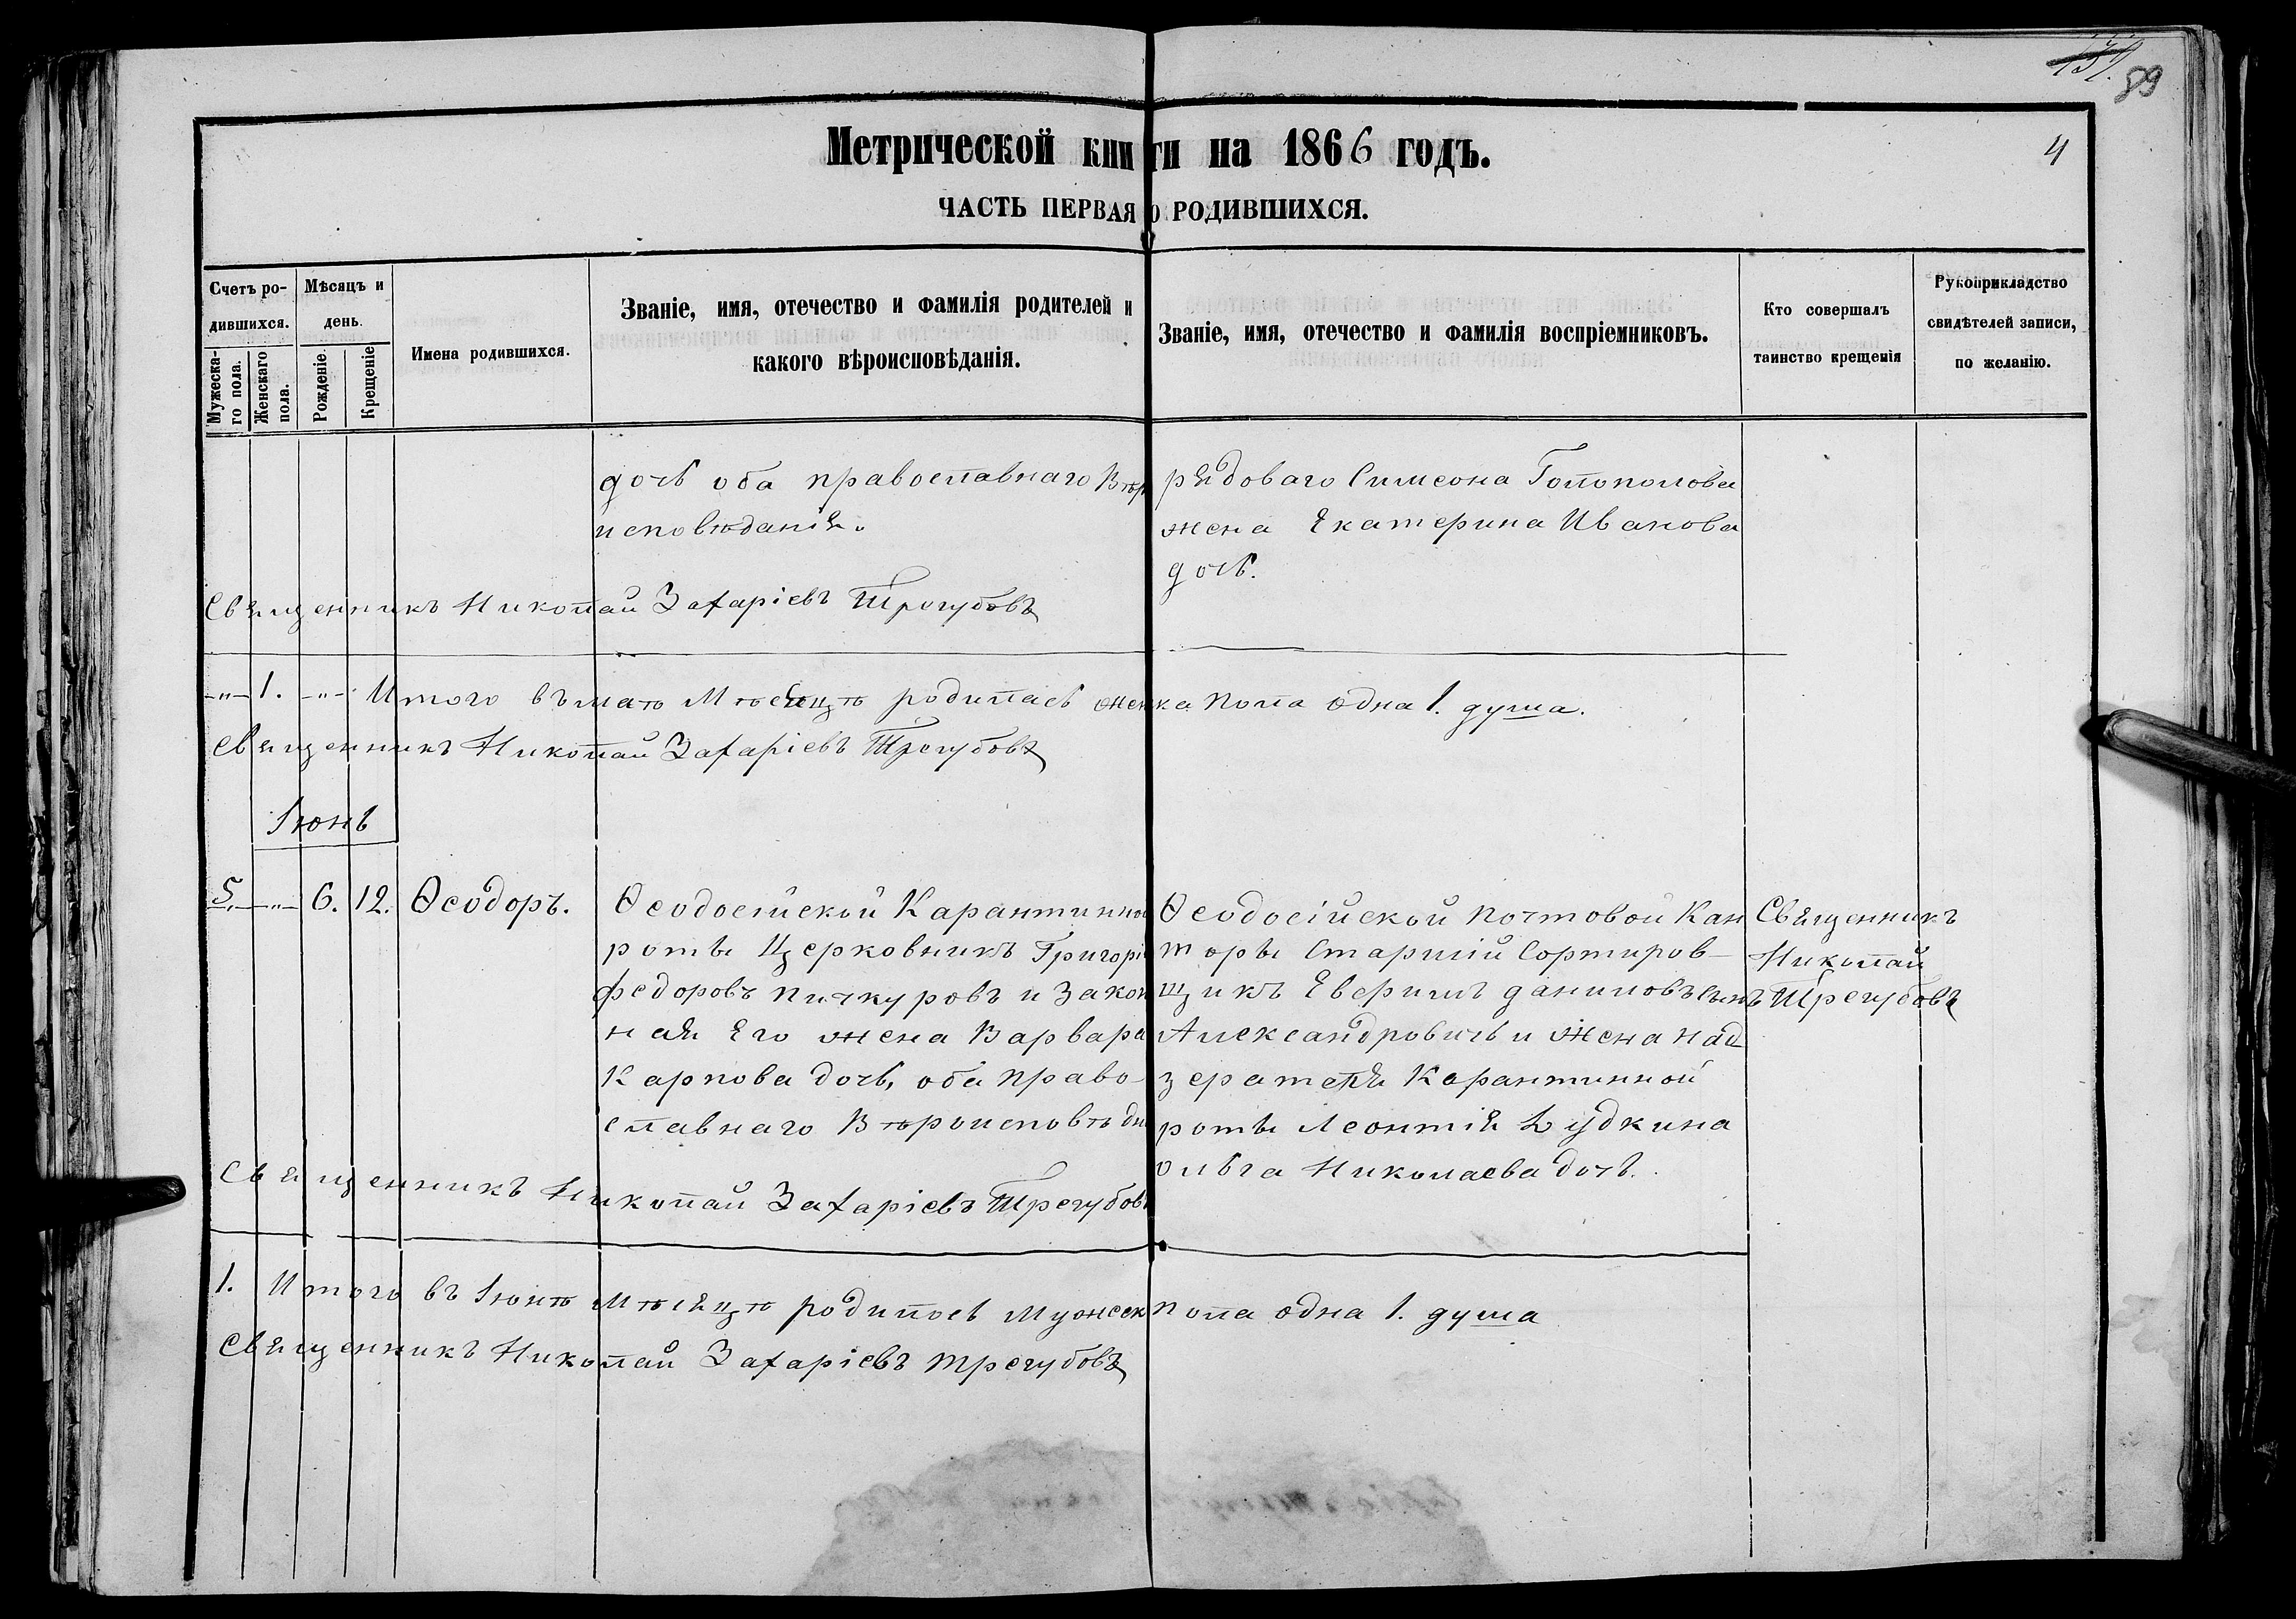 151. 89
4
Метрической книги на 1866 годъ.
ЧАСТЬ ПЕРВАЯ О РОДИВШИХСЯ.
Счетъ ро-
дившихся.
Мужеска-
го пола.
Женскаго
пола.
Мѣсяцъ и
день.
Рожденіе.
Крещеніе
Имена родившихся.
Званіе, имя, отечество и фамилія родителей и
какого вѣроисповѣданія.
Званіе, имя, отечество и фамилія воспріемниковъ.
Кто совершалъ
таинство крещенія
Рукоприкладство
свидѣтелей записи,
по желанію.
дочь оба православнаго Вѣр
исповѣданія.
рядоваго Симеона Голополова
жена Екатерина Иванова
дочь.
Священникъ Николай Захаріевъ Трегубовъ
-"- 1. -"- Итого въ маѣ Мѣсяцѣ родилась женска пола одна 1. душа.
Священникъ Николай Захаріевъ Трегубовъ
Іюнь
5. -"- 6. 12. Ѳеодоръ.
Ѳеодосійской Карантинно
роты Церковникъ Григорі
Федоровъ Пичкуровъ и Закон
ная Его жена Варвара
Карпова дочь, оба Право-
славнаго Вѣроисповѣдн
Ѳеодосійской Почтовой Кан
торы Старшій Сортиров-
щикъ Еверимъ Даниловъ сынъ
Александровичь и Жена Над
зерателя Карантинной
роты Леонтія Дудкина
Ольга Николаева дочь.
Священникъ
Николай
Трегубовъ
Священникъ Николай Захаріевъ Трегубовъ
1. Итого въ Іюнѣ Мѣсяцѣ родилось Мужеск пола одна 1. душа
Священникъ Николай Захаріевъ Трегубовъ